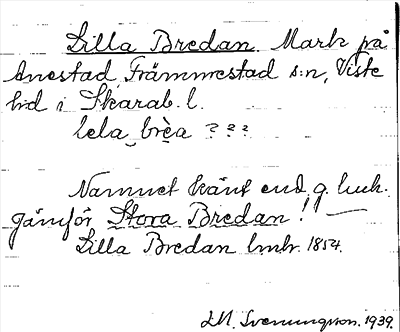 Lilla Bredan. Mark på
Anestad, Främmestad s:n, Viste
hd i Skarab. l.
lela brèa ? ? ?
Namnet känt end. g. luuk.
Jämför Stora Bredan!
Lilla Bredan lmhr. 1854.
D.M. Svenungsson. 1939.